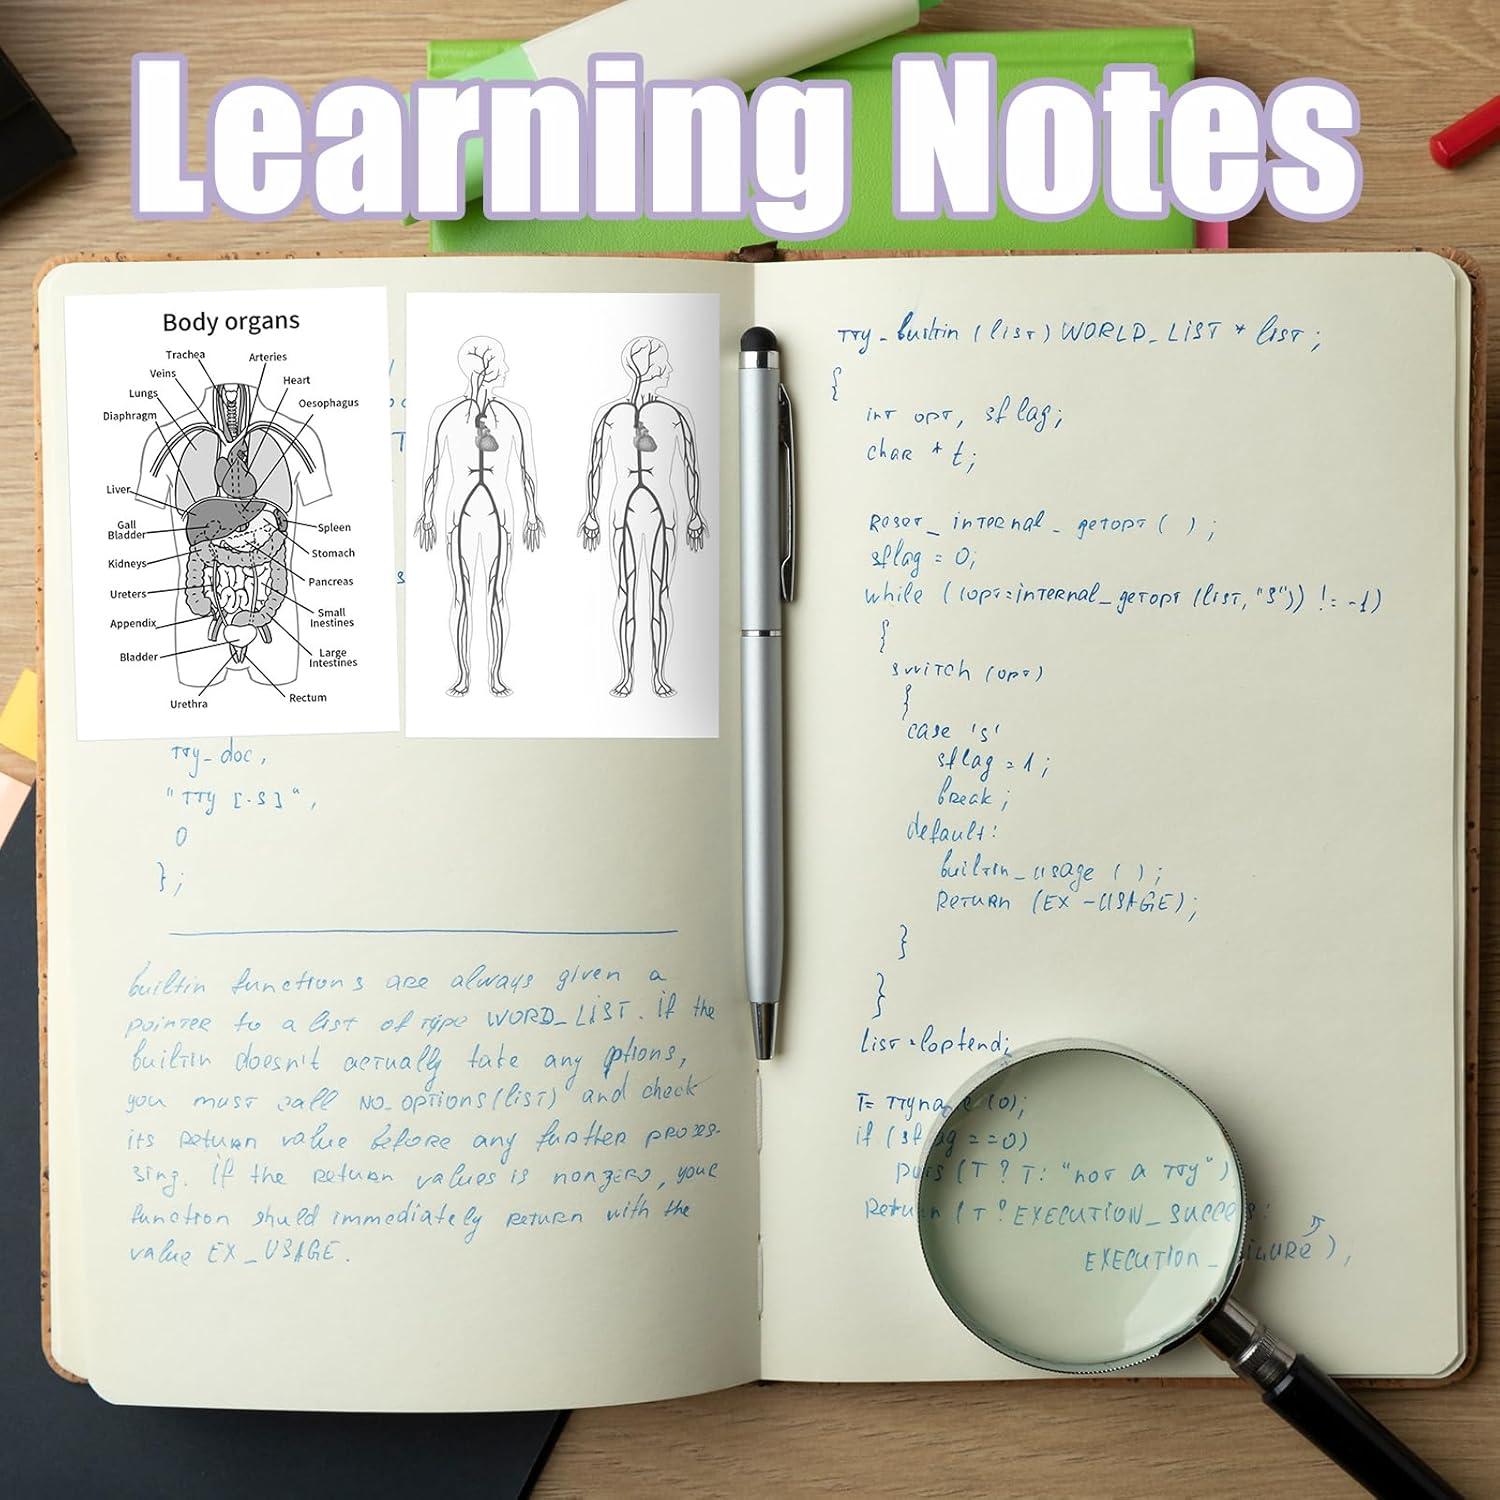 Learning Notes
Body organs
Trachea
Arteries
Veins
Heart
Lungs
Oesophagus
Diaphragm
Liver
Gall
Bladder
Spleen
Kidneys
Stomach
Ureters
Pancreas
Appendix
Small
Inestines
Bladder
Large
Intestines
Urethra
Rectum
tty_doc,
"tty [-s]",
0
};
builtin functions are always given a
pointer to a list of type WORD_LIST. if the
builtin doesn't actually take any options,
you must call no_options(list) and check
its return value before any further proces-
sing. if the return values is nonzero, your
function shuld immediately return with the
value EX_USAGE.
tty_builtin (list) WORLD_LIST * list;
{
int opt, sflag;
char * t;
Reset_internal_getopt ( );
sflag = 0;
while ((opt=internal_getopt (list, "s")) != -1)
{
switch (opt)
{
case 's'
sflag = 1;
break;
default:
builtin_usage ( );
Return (EX -USAGE);
}
}
List =loptend;
T= ttyname (0);
if (sflag ==0)
puts (T ? T: "not a tty")
Return (T ? EXECUTION_SUCCESS:
EXECUTION_FAILURE),